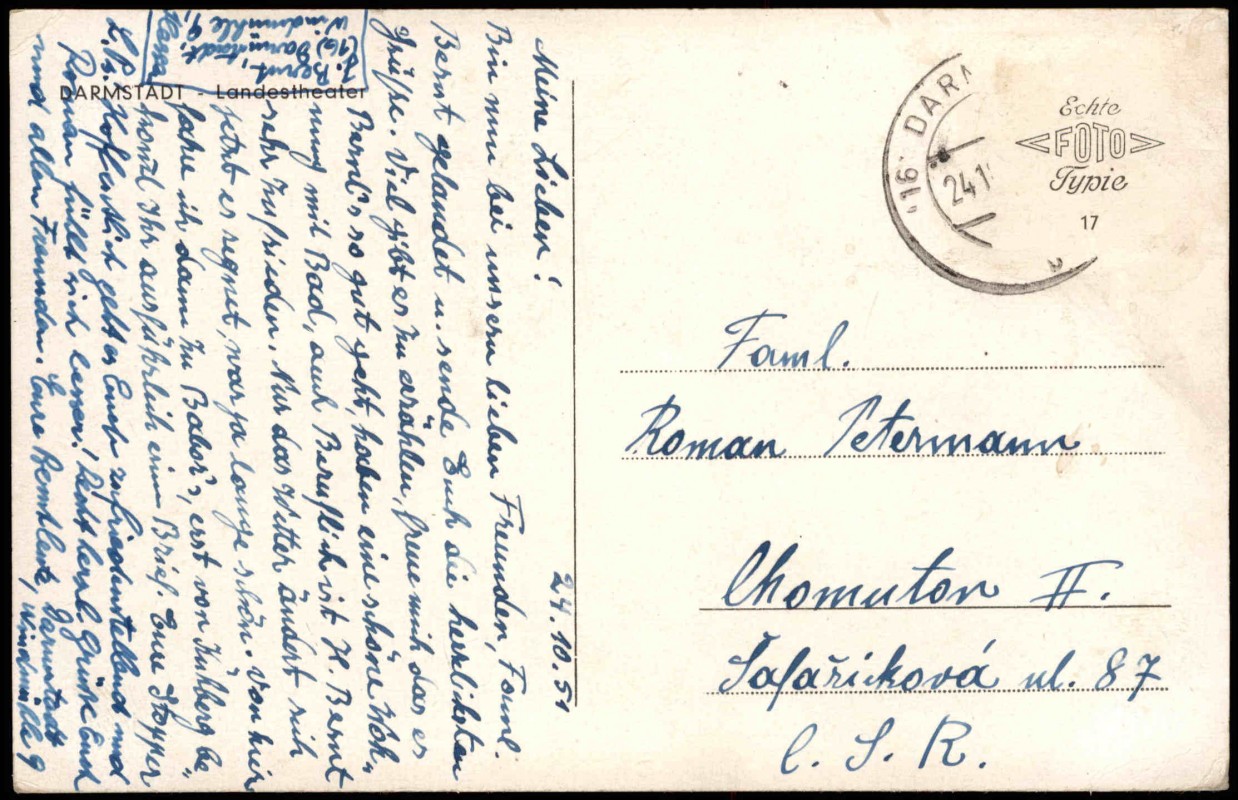 DARMSTADT - Landestheater
24.10.51
Meine Lieben!
Bin nun bei unsern lieben Freunden, Faml.
Bernt gelandet u. sende Euch die herzlichsten
Grüße. Viel gibt es zu erzählen, freue mich das es
Bernt's so gut geht, haben eine schöne Woh-
nung mit Bad, auch Beruflich ist H. Bernt
sehr zufrieden. Nur das Wetter ändert sich
jetzt es regnet, war ja lange schön. Von hier
fahre ich dann zu Babor's, erst von Kulberg be-
kommt Ihr ausführlich einen Brief. Eine
L.P. Hoffentlich geht es Euch zufriedenstellend und
Roman fühlt sich besser. Recht herzl. Grüße Euch
und allen Freunden. Eure Darmstadt
Windmühle 9
F. Bernt,
(16) Darmstadt,
Windmühle 9,
Hessen
(16) DARM
24.1
Echte
FOTO
Typie
17
Faml.
Roman Petermann
Chomutov II.
Šafaříková ul. 87
Č. S. R.